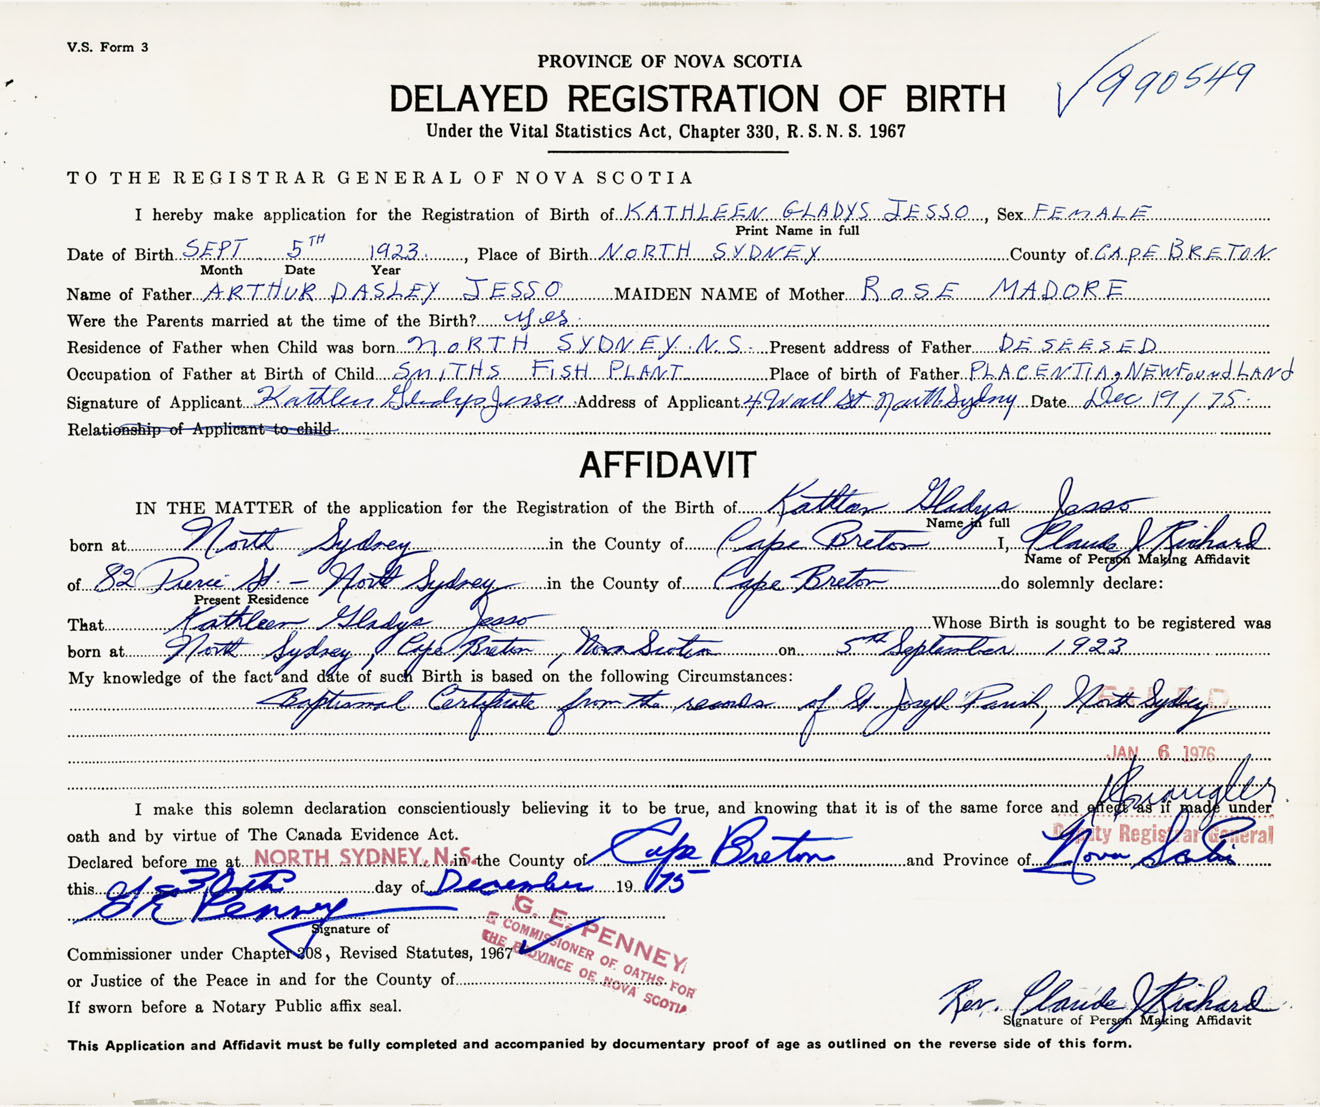 V.S. Form 3
PROVINCE OF NOVA SCOTIA
√990549
DELAYED REGISTRATION OF BIRTH
Under the Vital Statistics Act, Chapter 330, R. S. N. S. 1967
TO THE REGISTRAR GENERAL OF NOVA SCOTIA
I hereby make application for the Registration of Birth of KATHLEEN GLADYS JESSO, Sex FEMALE
Print Name in full
Date of Birth SEPT 5TH 1923, Place of Birth NORTH SYDNEY County of CAPE BRETON
Month Date Year
Name of Father ARTHUR DASLEY JESSO MAIDEN NAME of Mother ROSE MADORE
Were the Parents married at the time of the Birth? yes
Residence of Father when Child was born NORTH SYDNEY N.S. Present address of Father DESEESED
Occupation of Father at Birth of Child SMITHS FISH PLANT Place of birth of Father PLACENTIA, NEWFOUNDLAND
Signature of Applicant Kathleen Gladys Jesso Address of Applicant 4 Wall St North Sydney Date Dec 19/75
Relationship of Applicant to child
AFFIDAVIT
IN THE MATTER of the application for the Registration of the Birth of Kathleen Gladys Jesso
Name in full
born at North Sydney in the County of Cape Breton I, Claude J Richard
Name of Person Making Affidavit
of 82 Pierce St. - North Sydney in the County of Cape Breton do solemnly declare:
Present Residence
That Kathleen Gladys Jesso Whose Birth is sought to be registered was
born at North Sydney, Cape Breton, Nova Scotia on 5th September 1923
My knowledge of the fact and date of such Birth is based on the following Circumstances:
Baptismal Certificate from the records of St. Joseph Parish, North Sydney
FILED
JAN 6 1976
I make this solemn declaration conscientiously believing it to be true, and knowing that it is of the same force and effect as if made under
oath and by virtue of The Canada Evidence Act.
Deputy Registrar General
Declared before me at NORTH SYDNEY, N.S. in the County of Cape Breton and Province of Nova Scotia
this 30th day of December 1975
G E Penney
Signature of
G. E. PENNEY
A COMMISSIONER OF OATHS FOR
THE PROVINCE OF NOVA SCOTIA
Commissioner under Chapter 308, Revised Statutes, 1967 ✓
or Justice of the Peace in and for the County of
If sworn before a Notary Public affix seal.
Rev. Claude J Richard
Signature of Person Making Affidavit
This Application and Affidavit must be fully completed and accompanied by documentary proof of age as outlined on the reverse side of this form.